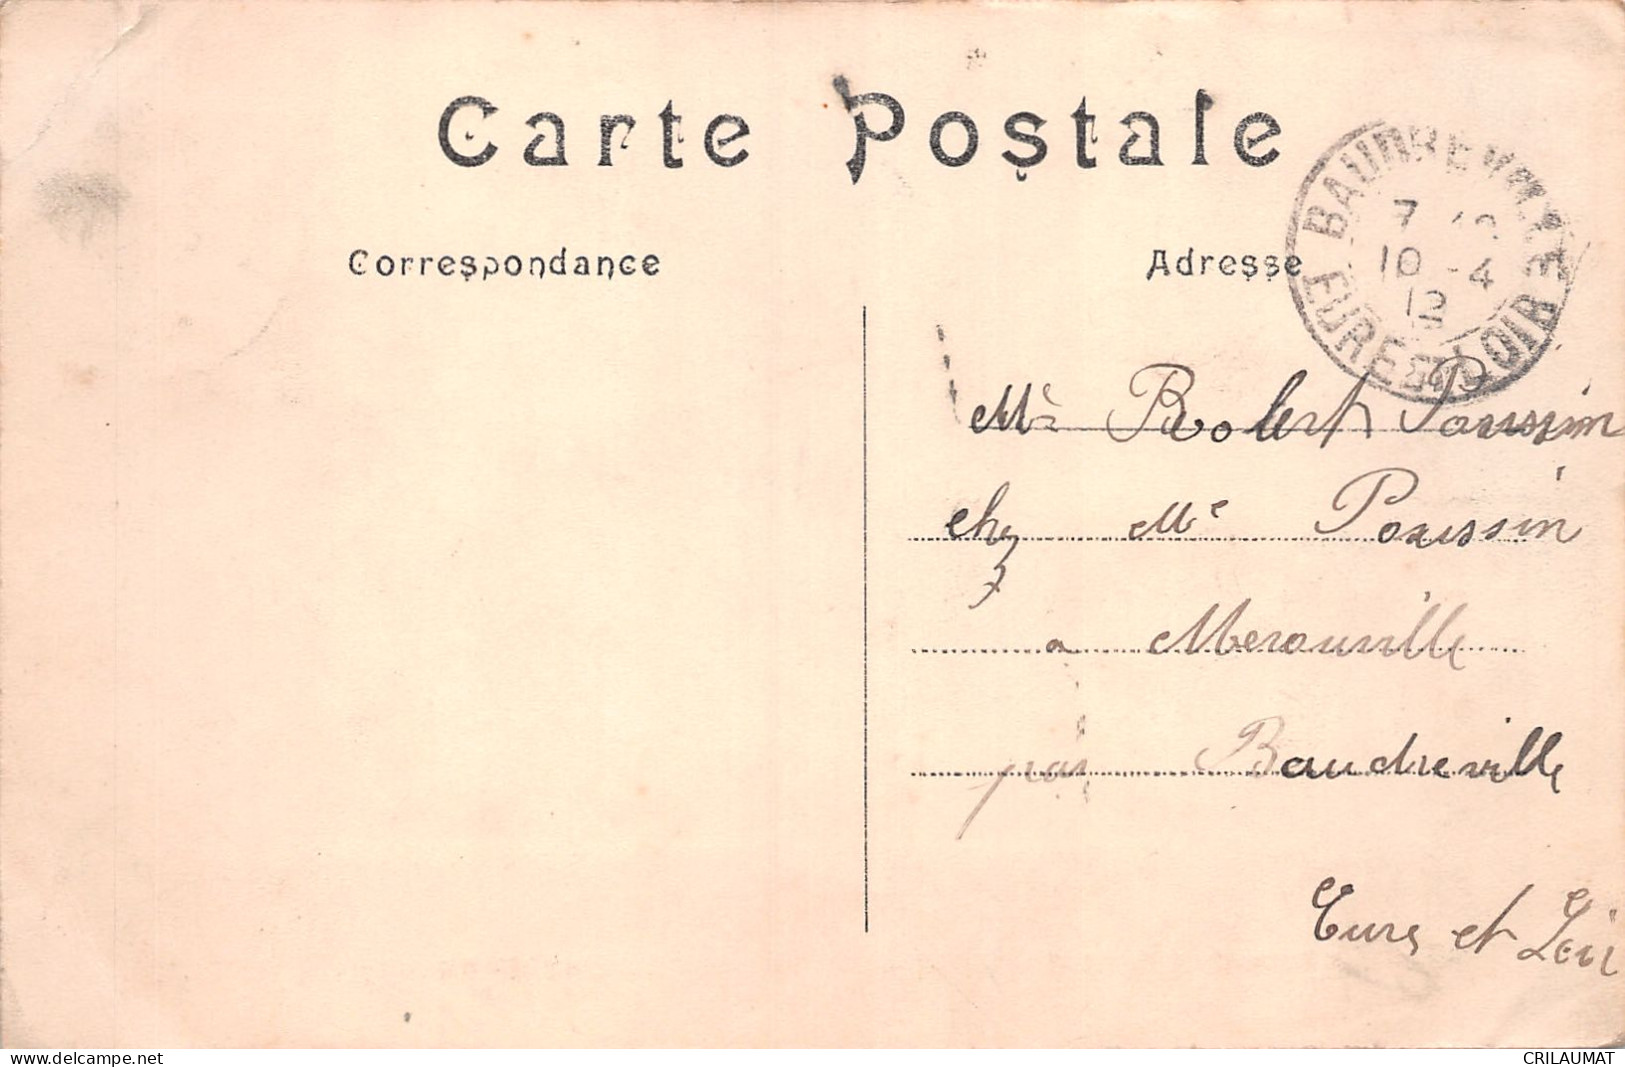 Carte Postale
Correspondance
Adresse
BAUDREVILLE
7
10 -4
12
EURE ET LOIR
Mr Robert Poussin
chez Me Poussin
a Merouville
par Baudreville
Eure et Loir
www.delcampe.net
CRILAUMAT